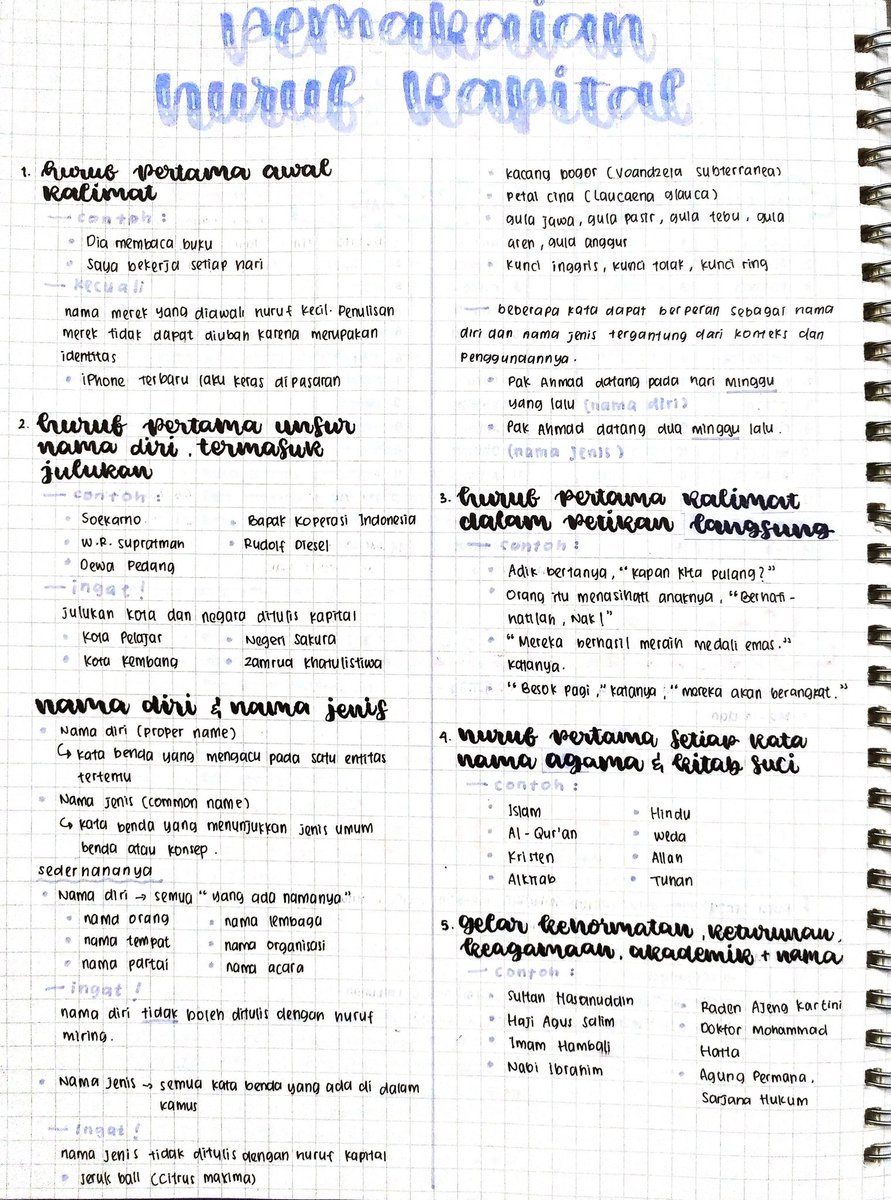 Pemakaian
huruf kapital
1. huruf pertama awal
kalimat
contoh :
• Dia membaca buku
• Saya bekerja setiap hari
kecuali
nama merek yang diawali huruf kecil. Penulisan
merek tidak dapat diubah karena merupakan
identitas
• iPhone terbaru laku keras di pasaran
2. huruf pertama unsur
nama diri, termasuk
julukan
contoh :
• Soekarno
• W.R. Supratman
• Dewa Pedang
• Bapak Koperasi Indonesia
• Rudolf Diesel
ingat !
julukan kota dan negara ditulis kapital
• Kota Pelajar
• Kota Kembang
• Negeri Sakura
• Zamrud Khatulistiwa
nama diri & nama jenis
• Nama diri (proper name)
↳ kata benda yang mengacu pada satu entitas
tertentu
• Nama jenis (common name)
↳ kata benda yang menunjukkan jenis umum
benda atau konsep.
sederhananya
• Nama diri → semua "yang ada namanya"
• nama orang
• nama tempat
• nama partai
• nama lembaga
• nama organisasi
• nama acara
ingat !
nama diri tidak boleh ditulis dengan huruf
miring.
• Nama jenis → semua kata benda yang ada di dalam
kamus
Ingat !
nama jenis tidak ditulis dengan huruf kapital
• jeruk bali (Citrus maxima)
• kacang bogor (Voandzeia subterranea)
• petai cina (Laucaena glauca)
• gula jawa, gula pasir, gula tebu, gula
aren, gula anggur
• kunci inggris, kunci tolak, kunci ring
beberapa kata dapat berperan sebagai nama
diri dan nama jenis tergantung dari konteks dan
penggunaannya.
• Pak Ahmad datang pada hari Minggu
yang lalu (nama diri)
• Pak Ahmad datang dua minggu lalu.
(nama jenis)
3. huruf pertama kalimat
dalam petikan langsung
contoh :
• Adik bertanya, "Kapan kita pulang?"
• Orang itu menasihati anaknya, "Berhati-
hatilah, Nak!"
• "Mereka berhasil meraih medali emas."
katanya.
• "Besok pagi," katanya, "mereka akan berangkat."
4. huruf pertama setiap kata
nama agama & kitab suci
contoh :
• Islam
• Al-Qur'an
• Kristen
• Alkitab
• Hindu
• Weda
• Allah
• Tuhan
5. gelar kehormatan, keturunan,
keagamaan, akademik + nama
contoh :
• Sultan Hasanuddin
• Haji Agus Salim
• Imam Hambali
• Nabi Ibrahim
• Raden Ajeng Kartini
• Doktor Mohammad
Hatta
• Agung Permana,
Sarjana Hukum